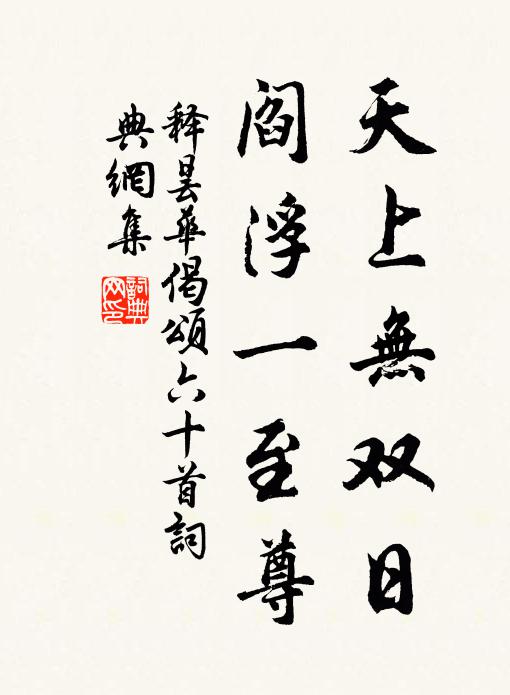 天上無双日
閻浮一至尊
释曇華偈頌六十首詞
典網集
詞典
网印